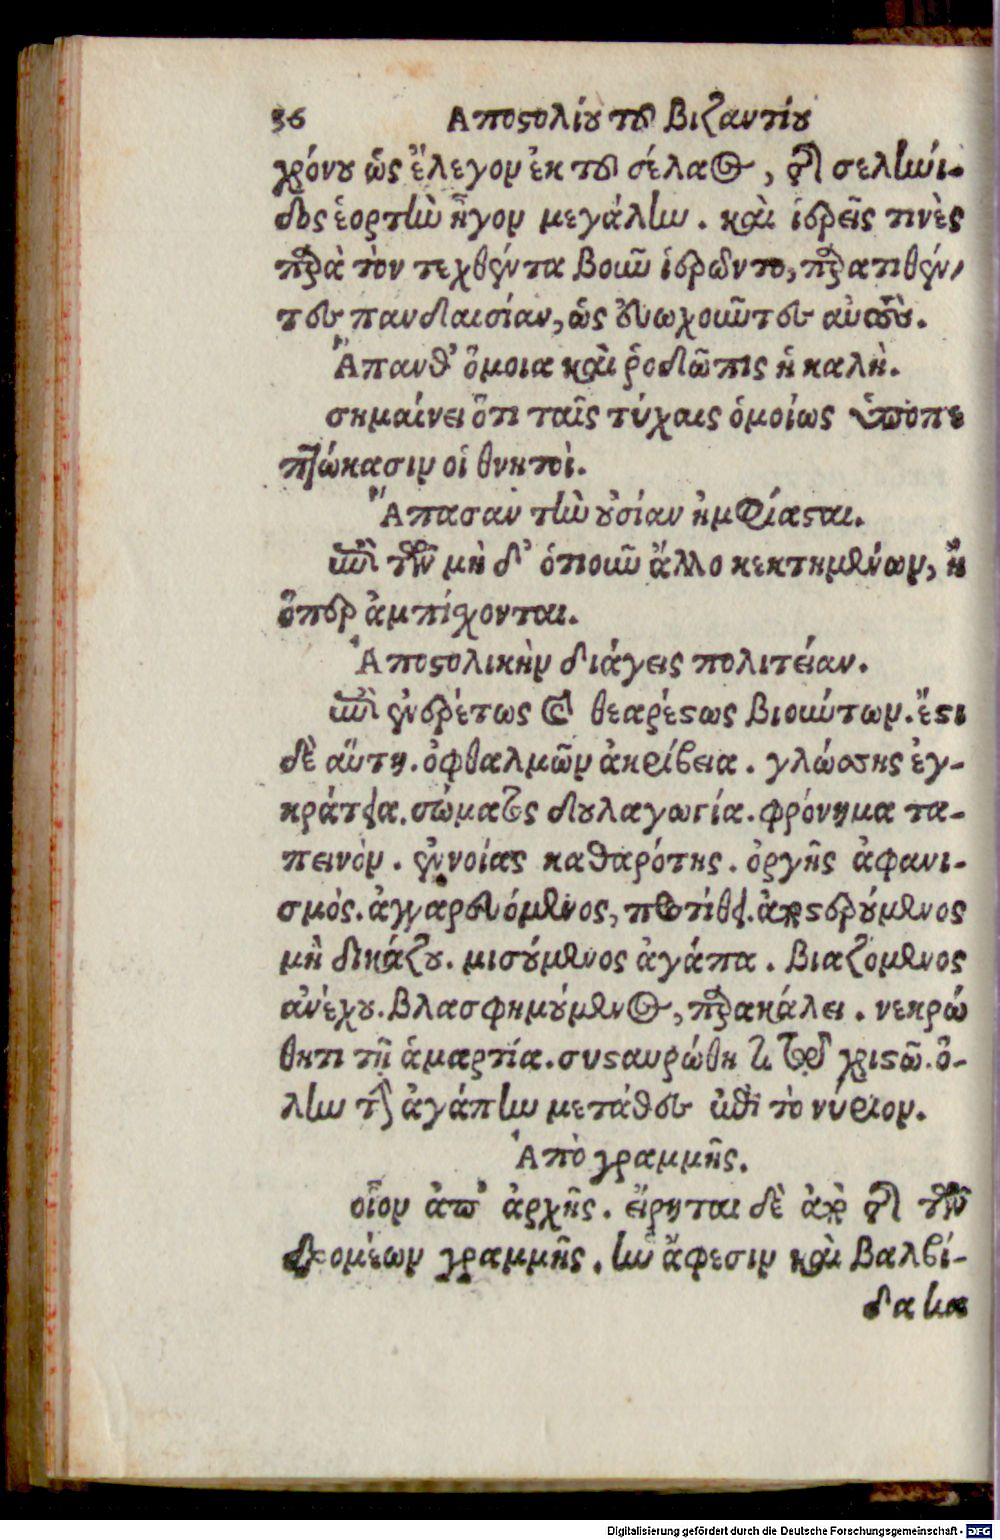 36 Αποστολίου τοῦ Βιζαντίου
χρόνου ὡς ἔλεγον ἐκ τοῦ σέλαος, τῆς σεληνί-
δος ἑορτὴν ἦγον μεγάλην. καὶ ἱερεῖς τινὲς
παρὰ τὸν τεχθέντα βοῦν ἱεροῦντο, παρατιθέν-
τες πανδαισίαν, ὡς εὐωχοῦντες αὐτούς.
Ἅπανθ' ὅμοια καὶ ῥοδῶπις ἡ καλὴ.
σημαίνει ὅτι ταῖς τύχαις ὁμοίως ὑποπε
πτώκασιν οἱ θνητοὶ.
Ἅπασαν τὴν οὐσίαν ἠμφίασται.
ἐπὶ τῶν μὴ δ' ὁτιοῦν ἄλλο κεκτημένων, ἢ
ὅπερ ἀμπίχονται.
Ἀποστολικὴν διάγεις πολιτείαν.
ἐπὶ ἐναρέτως καὶ θεαρέστως βιούντων. ἔστι
δὲ αὕτη. ὀφθαλμῶν ἀκρίβεια. γλώσσης ἐγ-
κράτεια. σώματος δουλαγωγία. φρόνημα τα-
πεινὸν. ἐννοίας καθαρότης. ὀργῆς ἀφανι-
σμός. ἀγγαρευόμενος, προστίθει. ἀποστερούμενος
μὴ δικάζου. μισούμενος ἀγάπα. βιαζόμενος
ἀνέχου. βλασφημούμενος, παρακάλει. νεκρώ
θητι τῇ ἁμαρτία. συσταυρώθητι τῷ χριστῷ. ὅ-
λην τὴν ἀγάπην μετάθες ἐπὶ τὸν κύριον.
Ἀπὸ γραμμῆς.
οἷον ἀπ' ἀρχῆς. εἴρηται δὲ ἀπὸ τῆς τῶν
δρομέων γραμμῆς. ἣν ἄφεσιν καὶ βαλβί-
δα
Digitalisierung gefördert durch die Deutsche Forschungsgemeinschaft - DFG